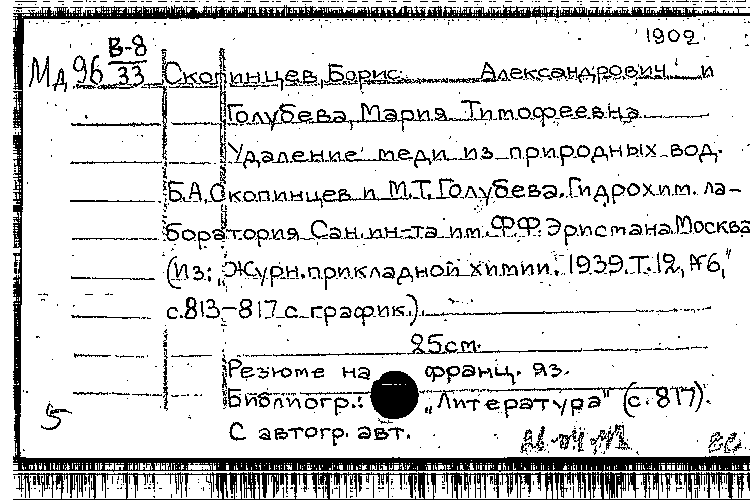 1902
Мд 96 В-8/33 Скопинцев, Борис Александрович и
Голубева, Мария Тимофеевна
Удаление меди из природных вод.
Б.А. Скопинцев и М.Т. Голубева. Гидрохим. ла-
боратория Сан. ин-та им. Ф.Ф. Эрисмана. Москва
(Из: „Журн. прикладной химии." 1939. Т. 12, №6,
с. 813-817 с график.).
25 см.
Резюме на франц. яз.
Библиогр.: „Литература" (с. 817).
5
С автогр. авт.